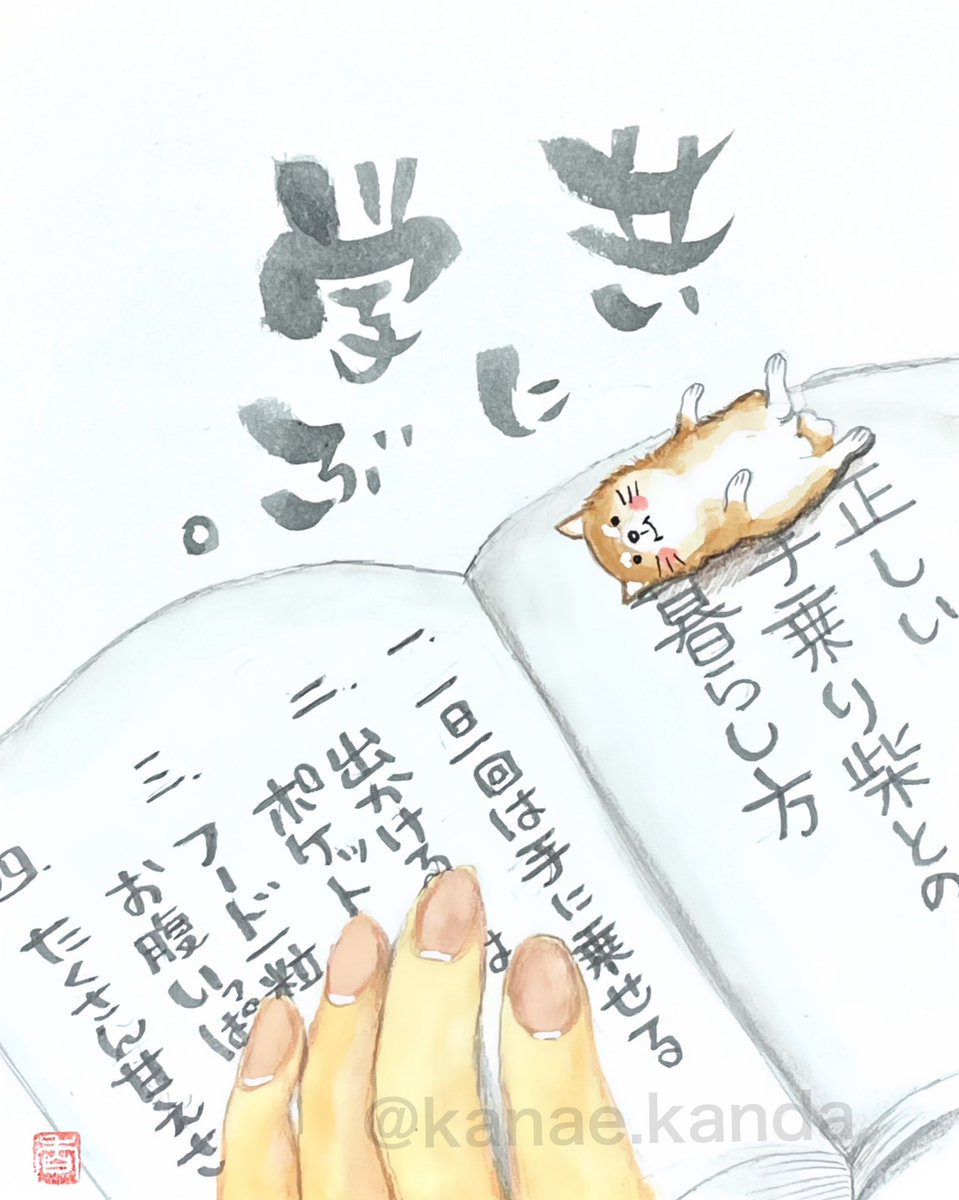 共
に
学
ぶ。
正しい
手乗り柴との
暮らし方
一. 一日一回は手に乗せる
二. 出かける
は
ポケット
三. フード一粒
お腹いっぱ
四.
たくさん甘えさ
@kanae.kanda